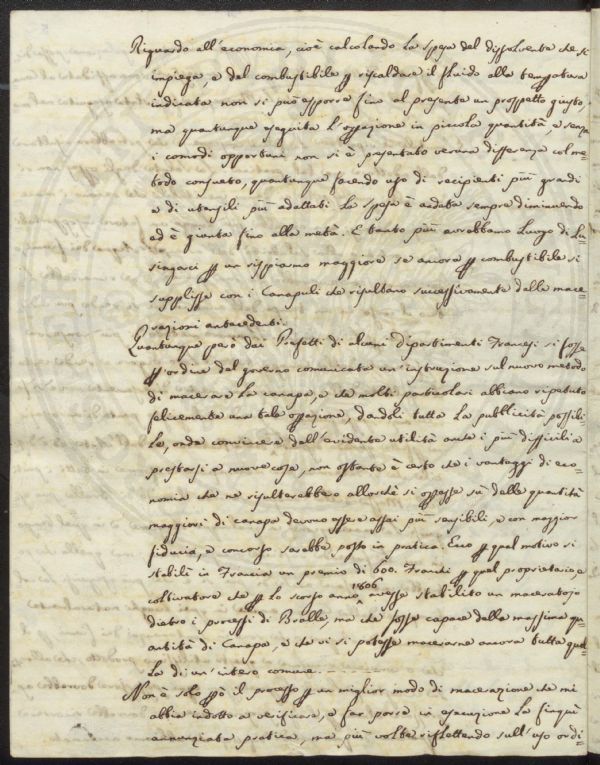 Riguardo all'economia, cioè calcolando la spesa del dissolvente che si
impiega, e del combustibile p riscaldare il fluido alla temperatura
indicata non si può esporre fino al presente un prospetto giusto,
ma quantunque eseguita l'operazione in piccola quantità, e senza
i comodi opportuni non si è presentata veruna differenza col me=
todo consueto, quantunque facendo uso di recipienti più grandi
e di utensili più adattati la spesa è andata sempre diminuendo
ed è giunta fino alla metà. E tanto più avrebbamo luogo di lu=
singarci p un risparmio maggiore se ancora p combustibile si
supplisse con i Canapuli che risultano successivamente dalle mace=
razioni antecedenti.
Quantunque però dai Prefetti di alcuni dipartimenti Francesi si fosse
p ordine del governo comunicata un'instruzione sul nuovo metodo
di macerare la canapa, e che molti particolari abbiano ripetuto
felicemente una tale operazione, dandoli tutta la pubblicità possibi=
le, onde convincere dell'evidente utilità anche i più difficili a
prestarsi a nuove cose, non ostante è certo che i vantaggi di eco=
nomia che ne risulterebbero allorchè si operasse sù delle quantità
maggiori di canapa devono essere assai più sensibili, e con maggior
fiducia, e concorso sarebbe posto in pratica. Ecco p qual motivo si
stabilì in Francia un premio di 600. Franchi p quel proprietario, e
coltivatore che p lo scorso anno 1806 avesse stabilito un maceratojo
dietro i processi di Bralle, ma che fosse capace della massima qu=
antità di Canapa, e che vi si potesse macerarne ancora tutta quel=
la di un'intero comune.
Non è solo pò il processo p un miglior modo di macerazione che mi
abbia indotto a verificare, e far porre in esecuzione la finquì
annunziata pratica, ma più volte riflettendo sull'uso ordi=